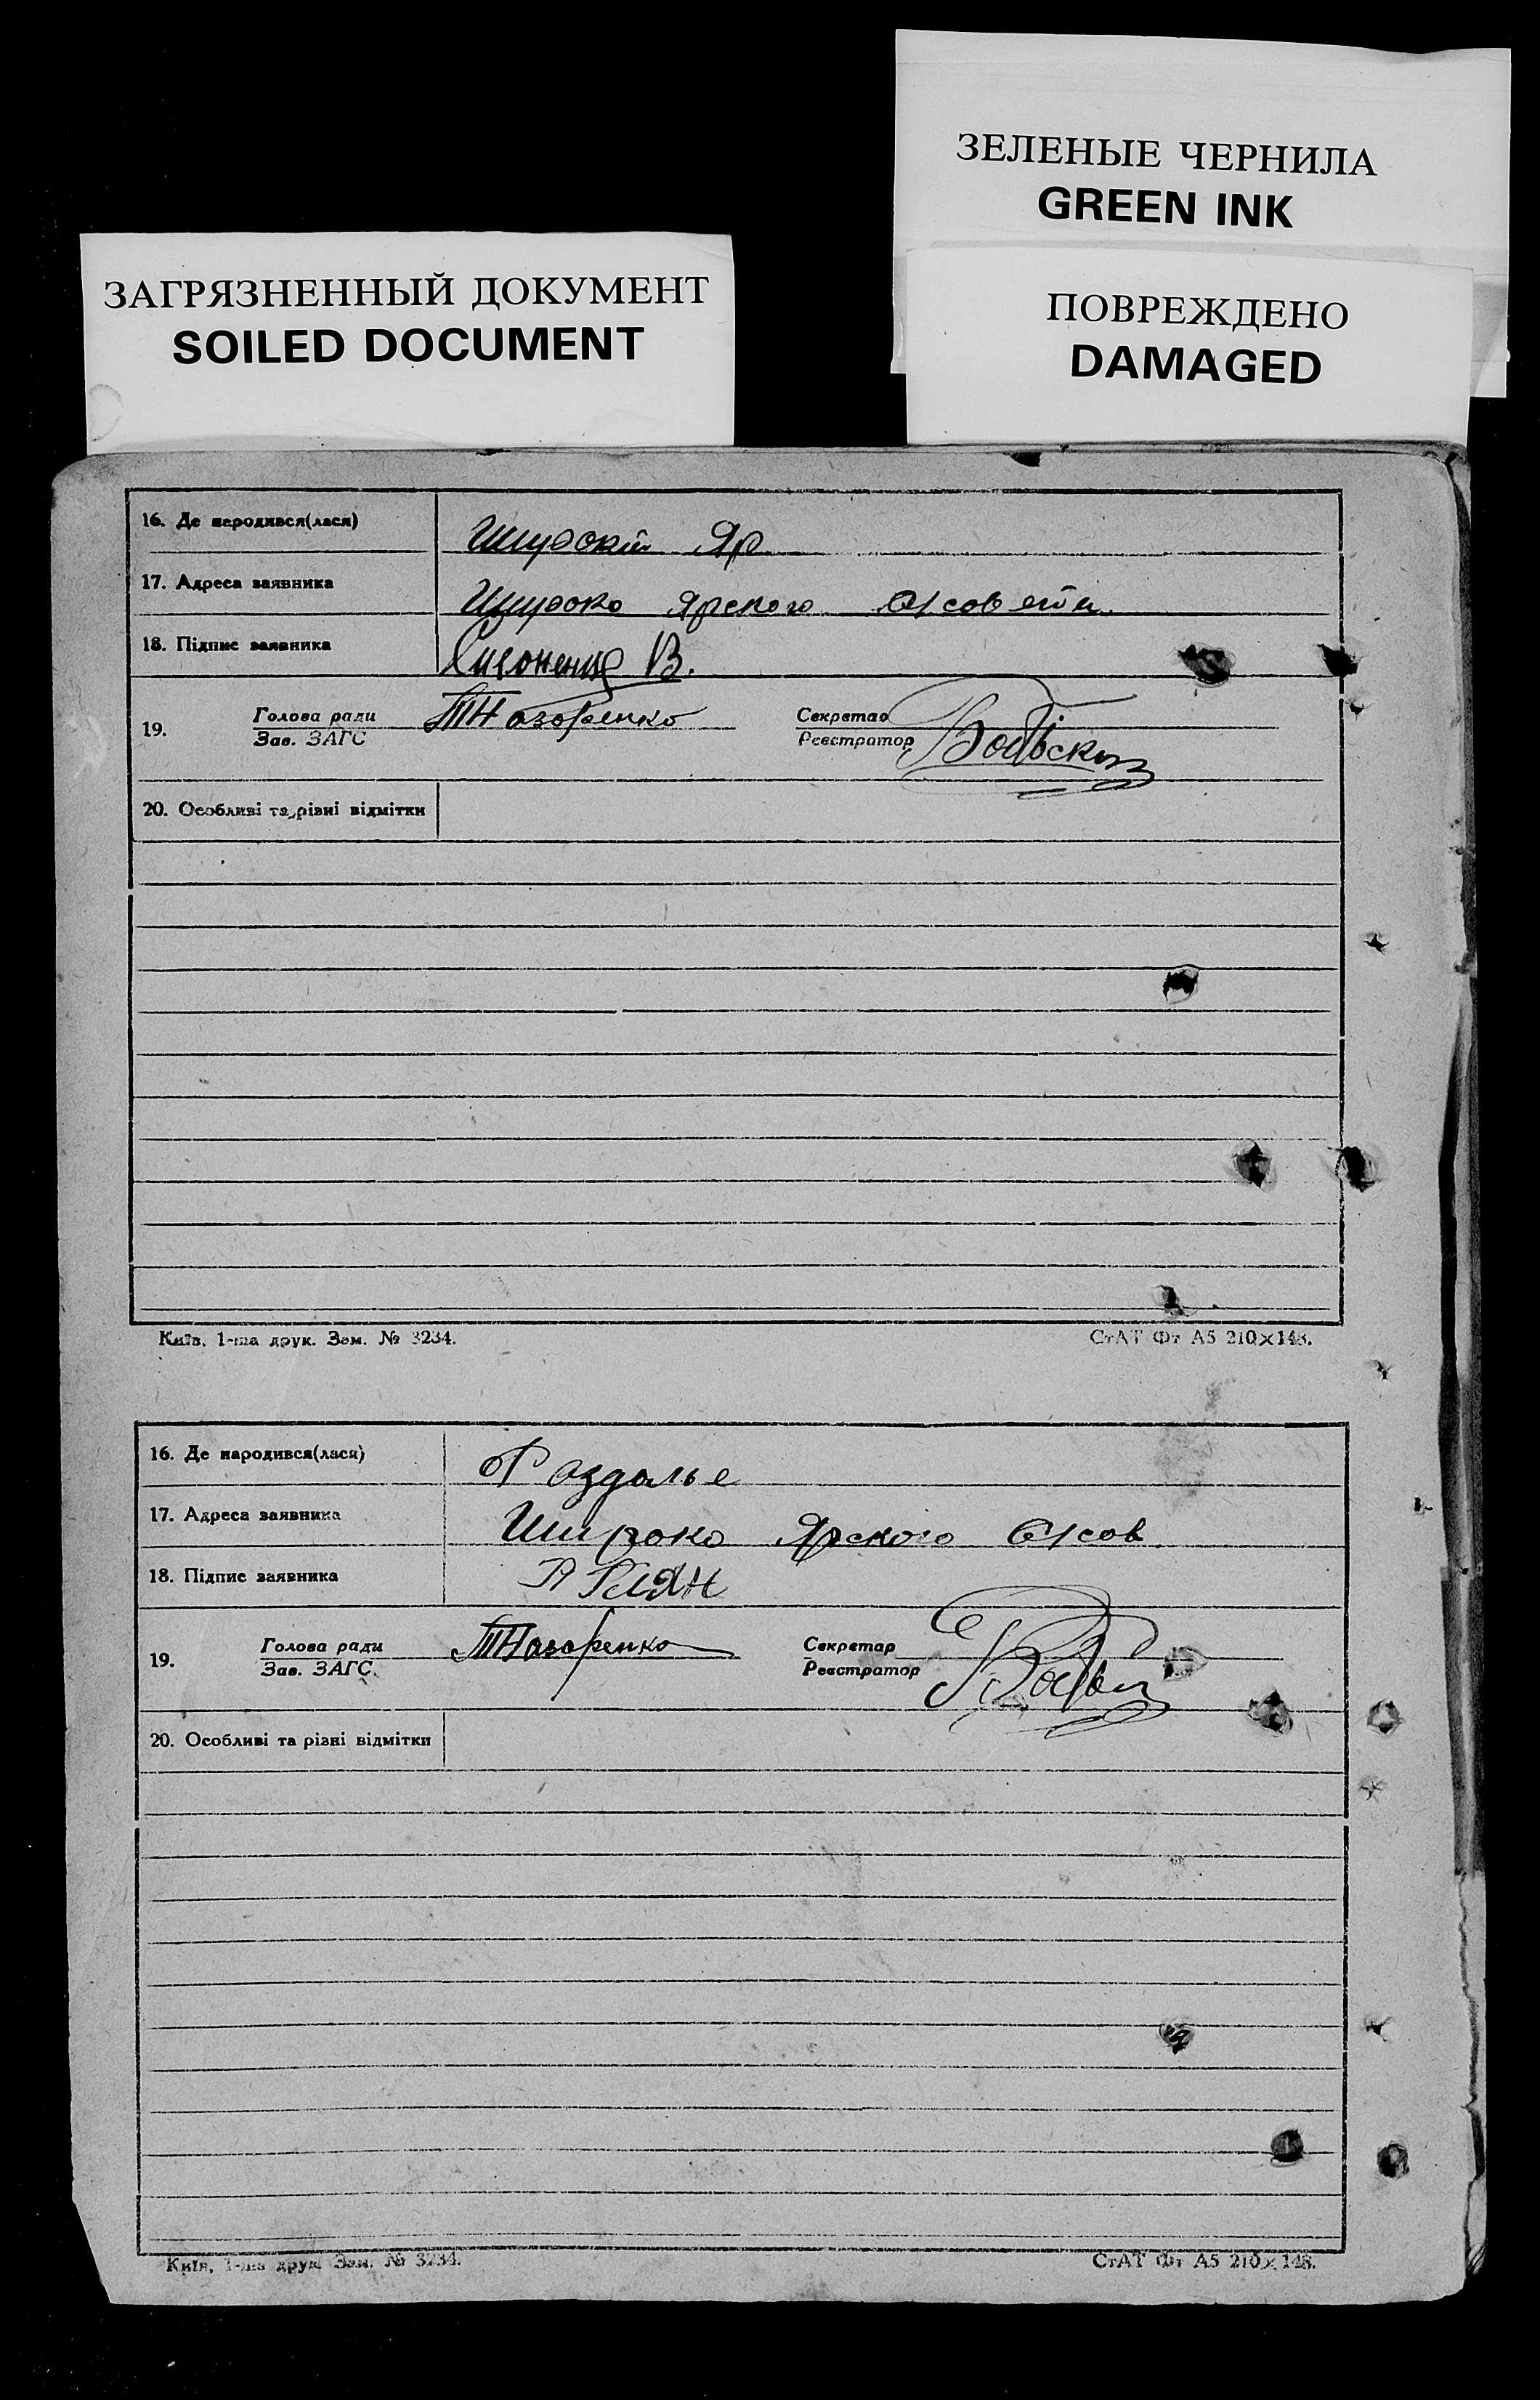 ЗЕЛЕНЫЕ ЧЕРНИЛА
GREEN INK
ЗАГРЯЗНЕННЫЙ ДОКУМЕНТ
SOILED DOCUMENT
ПОВРЕЖДЕНО
DAMAGED
16. Де народився(лася) Широкий Яр
17. Адреса заявника Широко Ярского с/совета
18. Підпис заявника В.
19. Голова ради Зав. ЗАГС ТНазаренко Секретар Реєстратор
20. Особливі та різні відмітки
Київ, 1-ша друк. Зам. № 3234. СтАТ Фт А5 210×148.
16. Де народився(лася) Раздолье
17. Адреса заявника Широко Ярского с/сов
18. Підпис заявника
19. Голова ради Зав. ЗАГС. ТНазаренко Секретар Реєстратор
20. Особливі та різні відмітки
Київ, 1-ша друк. Зам. № 3234. СтАТ Фт А5 210×148.